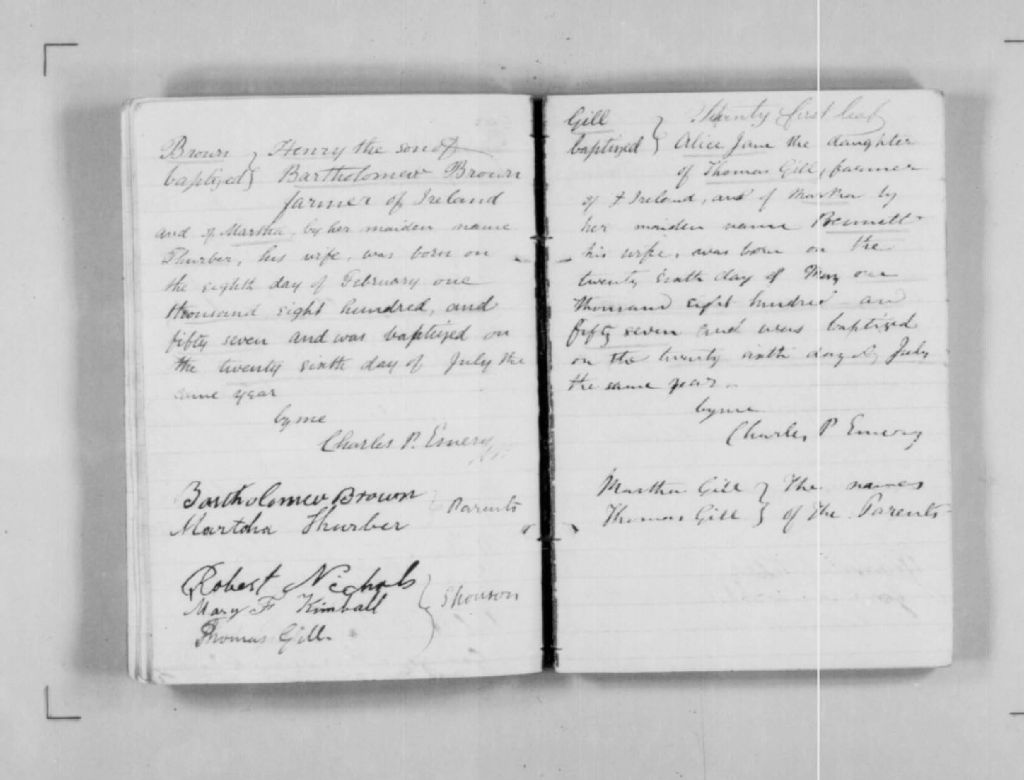 Brown } Henry the son of
baptized } Bartholomew Brown
farmer of Ireland
and of Martha, by her maiden name
Thurber, his wife, was born on
the eighth day of February one
thousand eight hundred, and
fifty seven and was baptized on
the twenty sixth day of July the
same year
by me
Charles P. Emery
Bartholomew Brown } Parents
Martha Thurber
Robert Nichols
Mary F Kimball } Sponsors
Thomas Gill.
Twenty first leaf
Gill } Alice Jane the daughter
baptized } of Thomas Gill, farmer
of Ireland, and of Martha by
her maiden name Bennett
his wife, was born on the
twenty sixth day of May one
thousand eight hundred and
fifty seven and was baptized
on the twenty sixth day of July
the same year.
by me
Charles P Emery
Martha Gill } The names
Thomas Gill } of the Parents